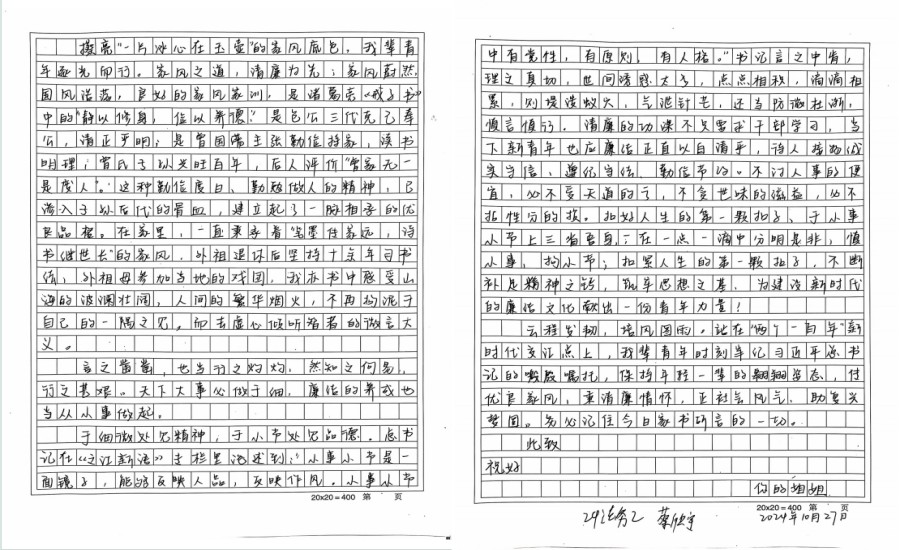 擦亮"一片冰心在玉壶"的家风底色，我辈青
年逐光而行。家风之道，清廉为先；家风蔚然，
国风浩荡，良好的家风家训，是诸葛亮《戒子书》
中的"静以修身，俭以养德"；是包公三代克己奉
公，清正严明；是曾国藩主张勤俭持家，读书
明理；曾氏子孙兴旺百年，后人评价"曾家无一
是废人"。这种勤俭度日、勤恳做人的精神，已
渗入子孙后代的骨血，建立起了一脉相承的优
良品格。在家里，一直秉承着"忠厚传家远，诗
书继世长"的家风，外祖退休后坚持十余年习书
法，外祖母参加当地的戏团，我亦书中感受山
海的波澜壮阔，人间的繁华烟火，不再拘泥于
自己的一隅之见。而去虚心倾听智者的微言大
义。
言之凿凿，也当行之灼灼，然知之何易，
行之甚艰。天下大事必做于细，廉洁的养成也
当从小事做起。
于细微处见精神，于小节处见品德。总书
记在《之江新语》专栏里论述到："小事小节是一
面镜子，能够反映人品，反映作风。小事小节
20×20=400 第 页
中有党性，有原则，有人格。"书记言之中肯，
理之真切，世间诱惑太多，点点相积，滴滴相
累，则堤溃蚁穴，气泄针芒，还当防微杜渐，
慎言慎行。清廉的功课不只要求干部学习，当
下新青年也应廉洁正直以自清乎，待人接物诚
实守信、遵纪守法、勤俭节约。不讨人事的便
宜，必不受天道的亏，不贪世味的滋益，必不
招性分的损。扣好人生的第一颗扣子，于小事
小节上三省吾身；在一点一滴中分明是非，慎
小事，拘小节；扣紧人生的第一颗扣子，不断
补足精神之钙，筑牢思想之基，为建设新时代
的廉洁文化献出一份青年力量！
云程发轫，培风图南。站在"两个一百年"新
时代交汇点上，我辈青年时刻牢记习近平总书
记的殷殷嘱托，保持年轻一辈的翩翩姿态，传
优良家风，秉清廉情怀，正社气风气，助复兴
梦圆。务必记住今日家书所言的一切。
此致
祝好
你的姐姐
20×20=400 第 页
2024年10月27日